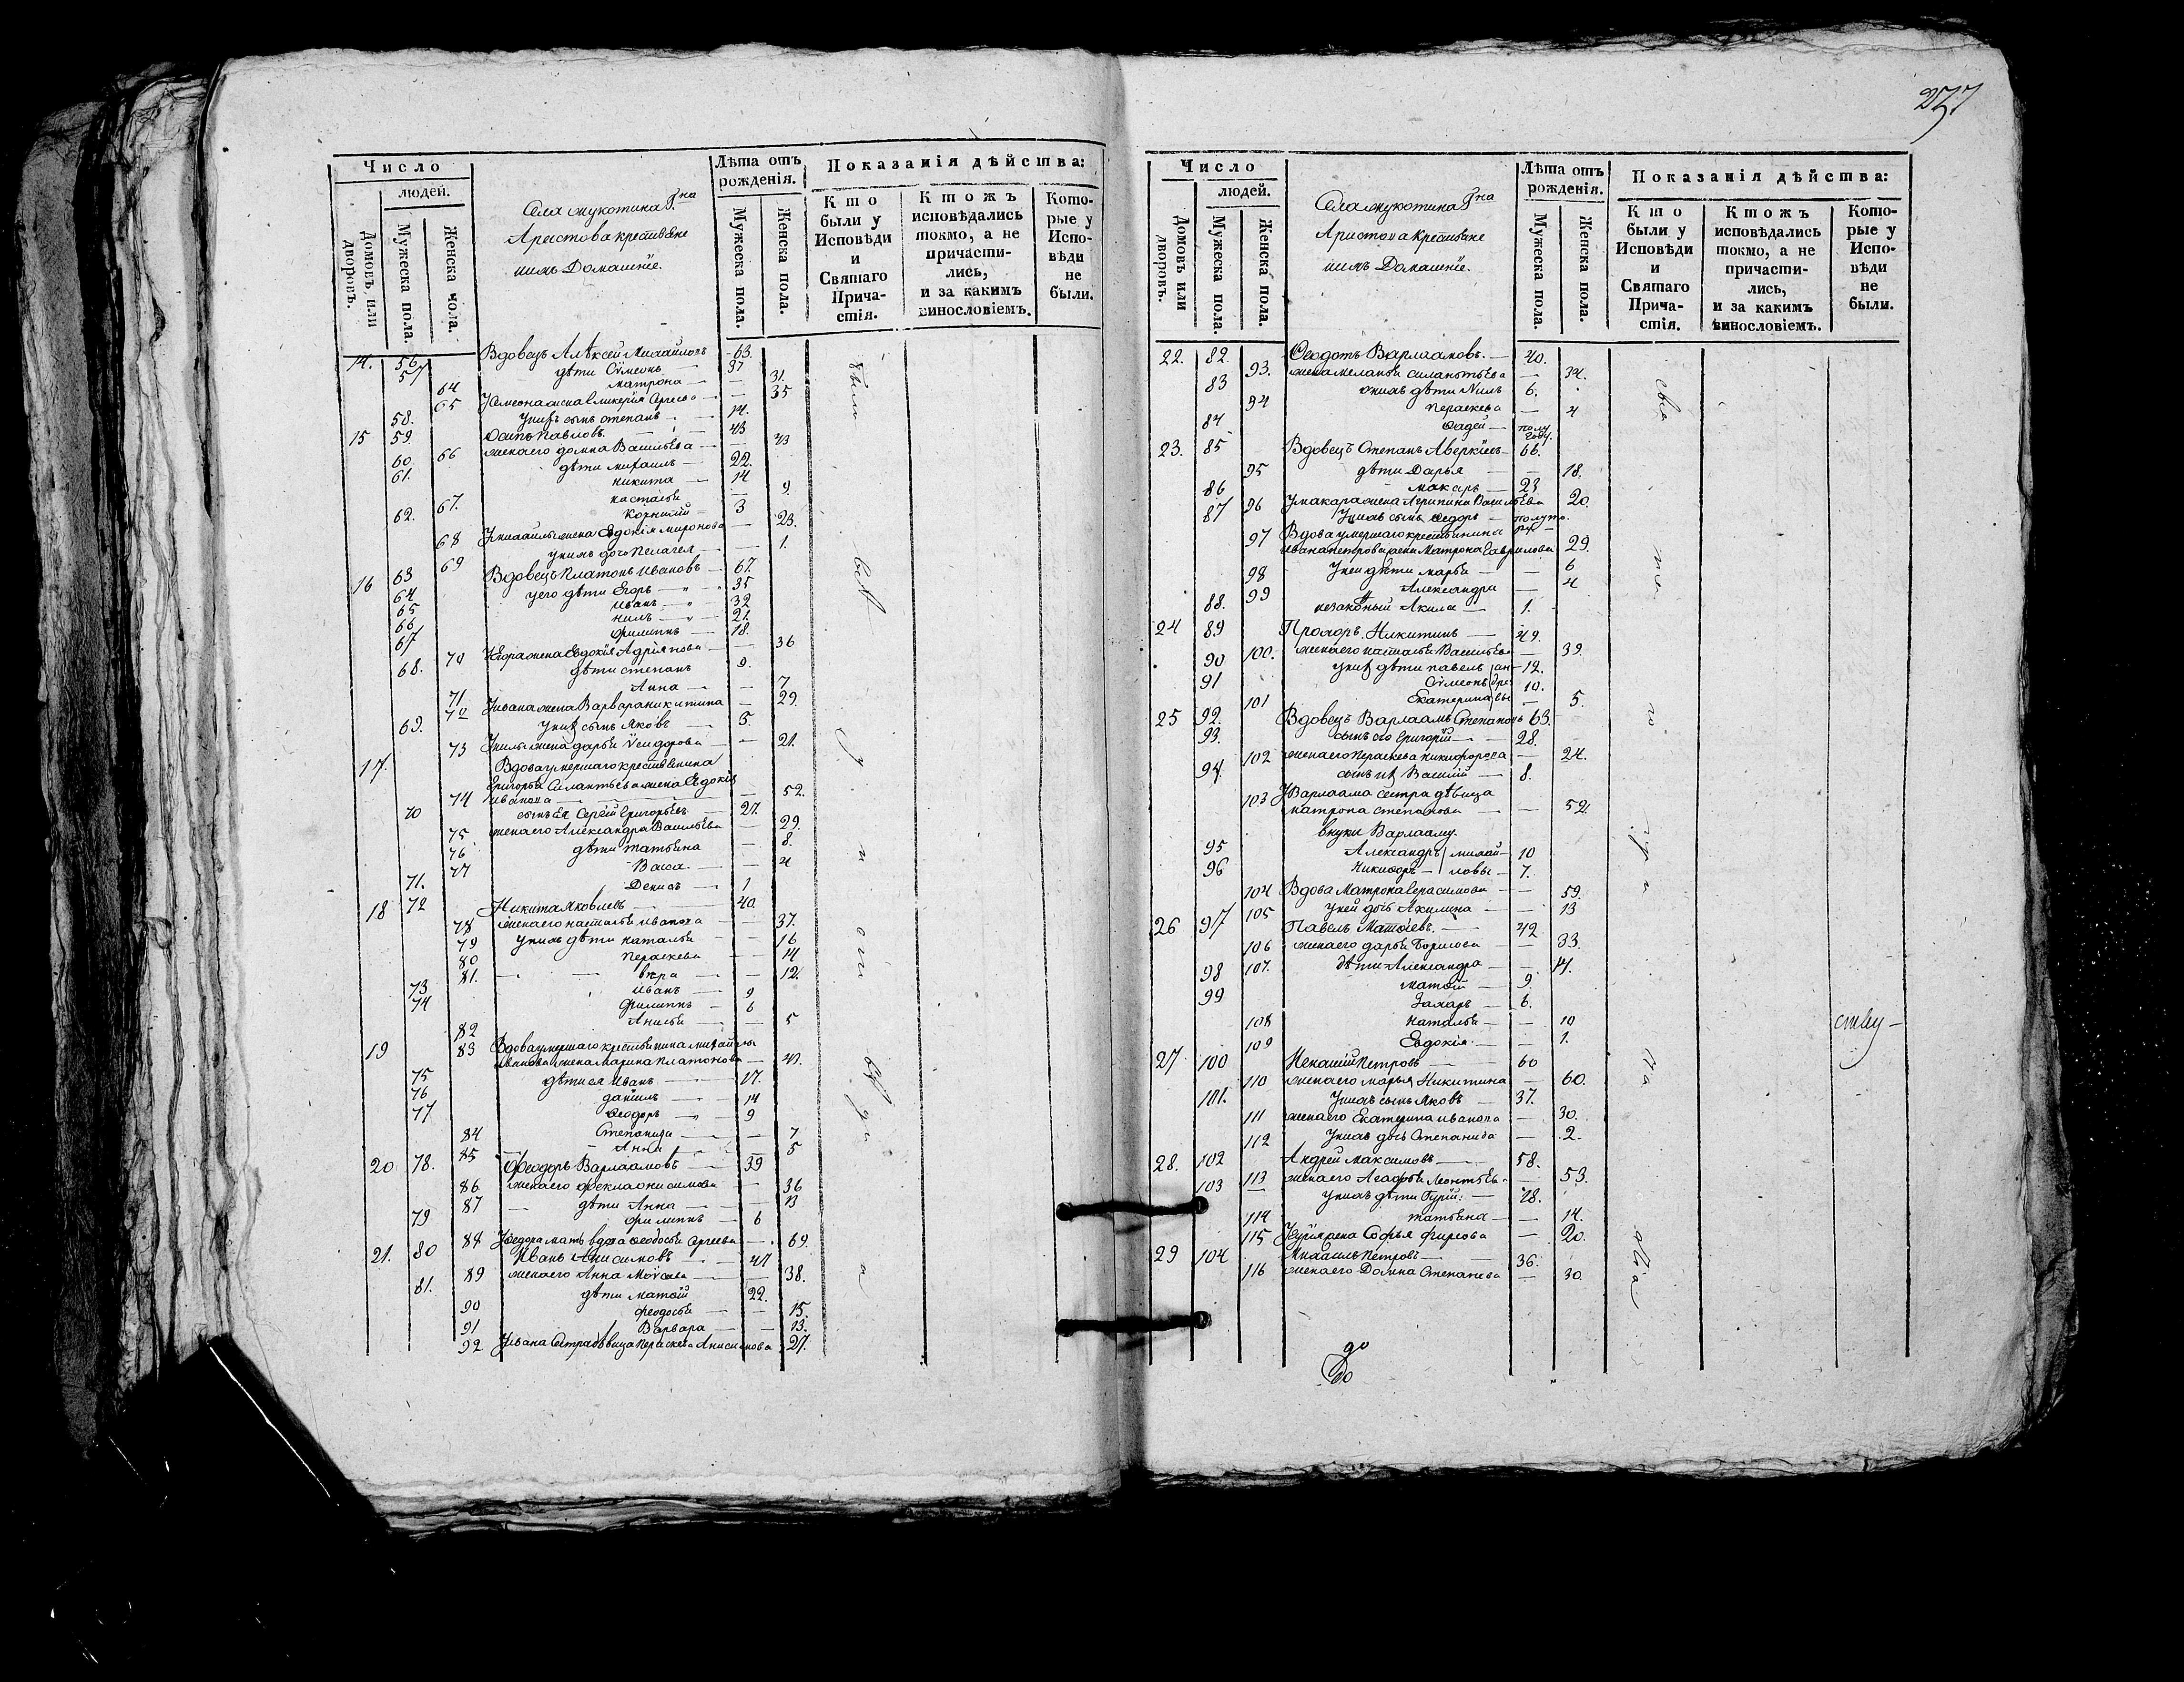 237
Число
людей.
Домовъ, или дворовъ.
Мужеска пола.
Женска пола.
Села Мукотина Гна
Аристова крестьяне
ихъ Домашніе.
Лѣта отъ рожденія.
Мужеска пола.
Женска пола.
Показанія дѣйства:
Кто были у Исповѣди и Святаго Причастія.
Ктожъ исповѣдались токмо, а не причастились, и за какимъ винословіемъ.
Которые у Исповѣди не были.
14. 56 Вдовецъ Алѣксей Михайловъ 63.
57 дѣти Сѵмеонъ 37
64 Матрона 31.
65 У Сѵмеона жена Гликерія Сергѣева 35
58. у нихъ сынъ Степанъ 14.
15 59. Осипъ Павловъ. 43
66 жена его Домна Васильева 43
60. дѣти Михаилъ 22.
61. Никита 14
67. Насталья 9.
62. Корнилий 3
68 У Михаилы жена Евдокія Миронова 23.
69 у нихъ дочь Пелагея 1.
16 63 Вдовецъ Платонъ Ивановъ 67.
64 у его дѣти Егоръ 35
65 Иванъ 32
66 Нилъ 21.
67 Филиппъ 18.
70 У Егора жена Евдокія Адріянова 36
68. дѣти Степанъ 9.
71 Анна 7
72 У Ивана жена Варвара Никитина 29.
69. у нихъ сынъ Яковъ 5.
73 У Нила жена Дарья Исидорова 21.
17. Вдова умершаго крестьянина
Григорья Силантьева жена Евдокія
74 Иванова 52.
70 сынъ ея Сергѣй Григорьевъ 27.
75 жена его Александра Васильева 29.
76 дѣти Татьяна 8.
77 Васа 4
71. Денисъ 1
18 72 Никита Яковлевъ 40.
78 жена его Насталья Иванова 37.
79 у нихъ дѣти Наталья 16
80 Пераскева 14
81. Вѣра 12.
73 Иванъ 9
74 Филиппъ 6
82 Анисья 5
19 83 Вдова умершаго крестьянина Михайлы
Иванова жена Марина Платонова 43.
75 дѣти ея Иванъ 17.
76 Даніилъ 14
77 Ѳеодоръ 9
84 Степанида 7
85 Анна 5
20 78. Феодоръ Варлаамовъ 39
86 жена его Фекла Онисимова 36
87 дѣти Анна 13
79 Филиппъ 6
88 У Федора мать вдова Ѳеодосья Сергеева 69.
21. 80 Иванъ Анисимовъ 47
89 жена его Анна Моѵсеева 38.
81. дѣти Матѳій 22.
90 Феодосья 15.
91 Варвара 13.
92 У Ивана сестра дѣвица Пераскева Анисимова 27.
были всѣ у
Число
людей.
Домовъ или дворовъ.
Мужеска пола.
Женска пола.
Села Мукотина Гна
Аристова Крестьяне
ихъ Домашніе.
Лѣта отъ рожденія.
Мужеска пола.
Женска пола.
Показанія дѣйства:
Кто были у Исповѣди и Святаго Причастія.
Ктожъ исповѣдались токмо, а не причастились, и за какимъ винословіемъ.
Которые у Исповѣди не были.
22. 82. Ѳеодотъ Варлаамовъ. 40.
93. жена Меланья Силантьева 34.
83 у нихъ дѣти Нилъ 6.
94 Пераскева 4
84 Фадей полу году.
23. 85 Вдовецъ Степанъ Аверкіевъ 66.
95 дѣти Дарья 18.
86 Макаръ 23
96 У Макара жена Агрипина Васильева 20.
87 у нихъ сынъ Ѳедоръ полуто
97 Вдова умершаго крестьянина
Ивана Петрова жена Матрона Гаврилова 29.
98 У ней дѣти Марья 6
99 Александра 4
88. незаконый Акила 1.
24 89 Прохоръ Никитинъ 49.
100. жена его Насталья Васильева 39.
90 у нихъ дѣти Павелъ 12.
91 Сѵмеонъ 10.
101 Екатерина 5.
25 92. Вдовецъ Варлаамъ Степановъ 63.
93. сынъ его Григорій 28.
102 жена его Пераскева Никифорова 24.
94. сынъ их Василій 8.
103 У Варлаама сестра дѣвица
Матрона Степанова 52.
внуки Варлааму.
95 Александръ Михай- 10
96 Никифоръ ловы 7.
104 Вдова Матрона Герасимова 59.
105 У ней дочь Акилина 13
26 97 Павелъ Матѳіевъ. 42
106 жена его Дарья Борисова 33.
107. дѣти Александра 14.
98 Матѳій 9.
99 Захаръ 6.
108 Наталья 10
109 Евдокія 1.
27 100 Пекатій Петровъ 60
110 жена его Марья Никитина 60.
101. У нихъ сынъ Яковъ 37.
111 жена его Екатерина Иванова 30.
112 У нихъ дочь Степанида 2.
28. 102 Андрей Максимовъ 58.
113 жена его Агафья Леонтьева 53.
103 у нихъ дѣти Гурій. 28.
114 Татьяна 14.
115 У Гурія жена Софья Фирсова 20.
29 104 Михаилъ Петровъ 36.
116 жена его Домна Степанова 30.